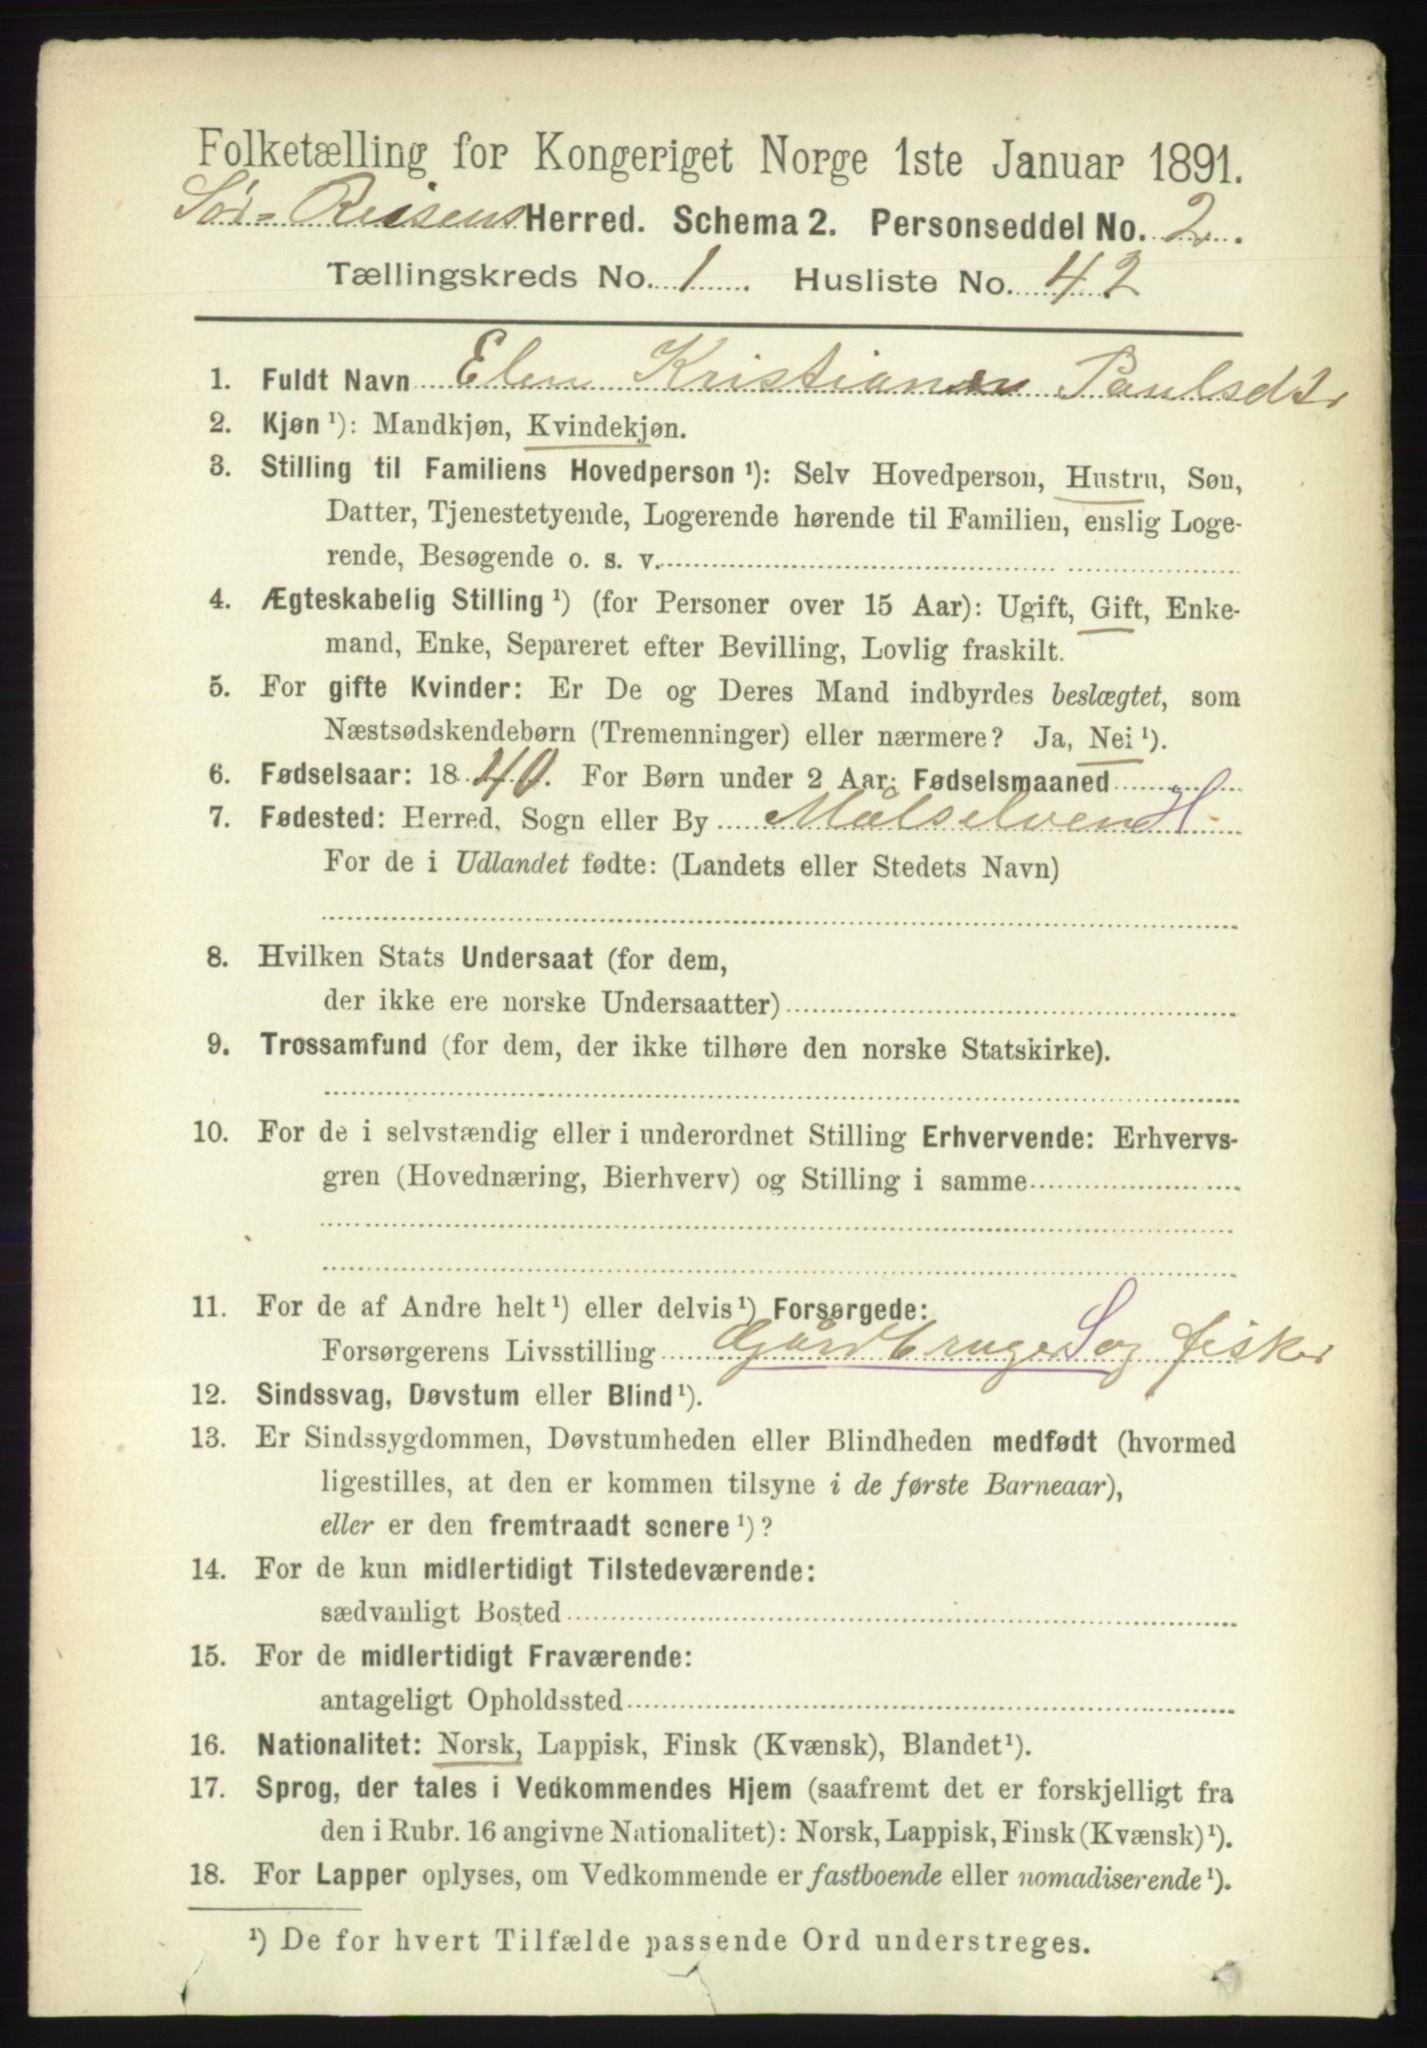 Folketælling for Kongeriget Norge 1ste Januar 1891.
Sør-Reisens Herred. Schema 2. Personseddel No. 2.
Tællingskreds No. 1. Husliste No. 42
1. Fuldt Navn Elen Kristiane Paulsdtr
2. Kjøn ¹): Mandkjøn, Kvindekjøn.
3. Stilling til Familiens Hovedperson ¹): Selv Hovedperson, Hustru, Søn,
Datter, Tjenestetyende, Logerende hørende til Familien, enslig Loge-
rende, Besøgende o. s. v.
4. Ægteskabelig Stilling ¹) (for Personer over 15 Aar): Ugift, Gift, Enke-
mand, Enke, Separeret efter Bevilling, Lovlig fraskilt.
5. For gifte Kvinder: Er De og Deres Mand indbyrdes beslægtet, som
Næstsødskendebørn (Tremenninger) eller nærmere? Ja, Nei ¹).
6. Fødselsaar: 1840. For Børn under 2 Aar: Fødselsmaaned
7. Fødested: Herred, Sogn eller By Målselven H
For de i Udlandet fødte: (Landets eller Stedets Navn)
8. Hvilken Stats Undersaat (for dem,
der ikke ere norske Undersaatter)
9. Trossamfund (for dem, der ikke tilhøre den norske Statskirke).
10. For de i selvstændig eller i underordnet Stilling Erhvervende: Erhvervs-
gren (Hovednæring, Bierhverv) og Stilling i samme
11. For de af Andre helt ¹) eller delvis ¹) Forsørgede:
Forsørgerens Livsstilling Gårdbruger S og fisker
12. Sindssvag, Døvstum eller Blind ¹).
13. Er Sindssygdommen, Døvstumheden eller Blindheden medfødt (hvormed
ligestilles, at den er kommen tilsyne i de første Barneaar),
eller er den fremtraadt senere ¹)?
14. For de kun midlertidigt Tilstedeværende:
sædvanligt Bosted
15. For de midlertidigt Fraværende:
antageligt Opholdssted
16. Nationalitet: Norsk, Lappisk, Finsk (Kvænsk), Blandet ¹).
17. Sprog, der tales i Vedkommendes Hjem (saafremt det er forskjelligt fra
den i Rubr. 16 angivne Nationalitet): Norsk, Lappisk, Finsk (Kvænsk) ¹).
18. For Lapper oplyses, om Vedkommende er fastboende eller nomadiserende ¹).
¹) De for hvert Tilfælde passende Ord understreges.